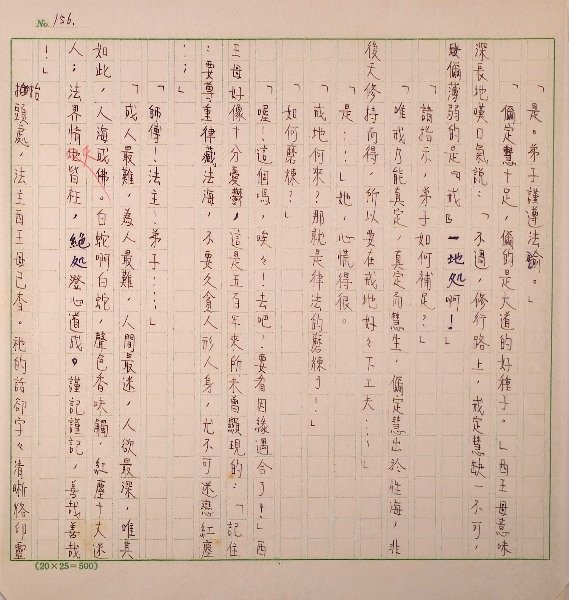 No. 156.
「是。弟子謹遵法諭。」
「偏定慧十足,偏的是大道的好種子。」酉王母意味
深長地嘆口氣說:「不過,修行路上,戒定慧缺一不可,
偏薄弱的是『戒』一地処啊!」
「請指示,弟子如何補足?」
「唯戒乃能真定,真定而慧生,偏定慧出於性海,非
後天修持而得,所以要在戒地好々下工夫…」
「是…」她,心慌得很。
「戒地何來?那就是律法的磨練了!」
「如何磨練?」
「喔!這個嗎,唉々!去吧?要看因緣遇合了!」西
王母好像十分憂鬱,這是五百年來所未曾顯現的:「記住
:要尊重律藏法海,不要久貪人形人身,尤不可迷戀紅塵
…」
「師傅!法主!弟子…」
「成人最難,為人最難,人間最迷,人欲最深,唯其
如此,人海成佛。白蛇啊白蛇,聲色香味觸,紅塵十丈迷
人;法界情天皆在,絕処澄心道成。謹記謹記,善哉善哉
!」
抬頭處,法主西王母已杳。祂的話卻字々清晰烙印靈
(20×25=500)